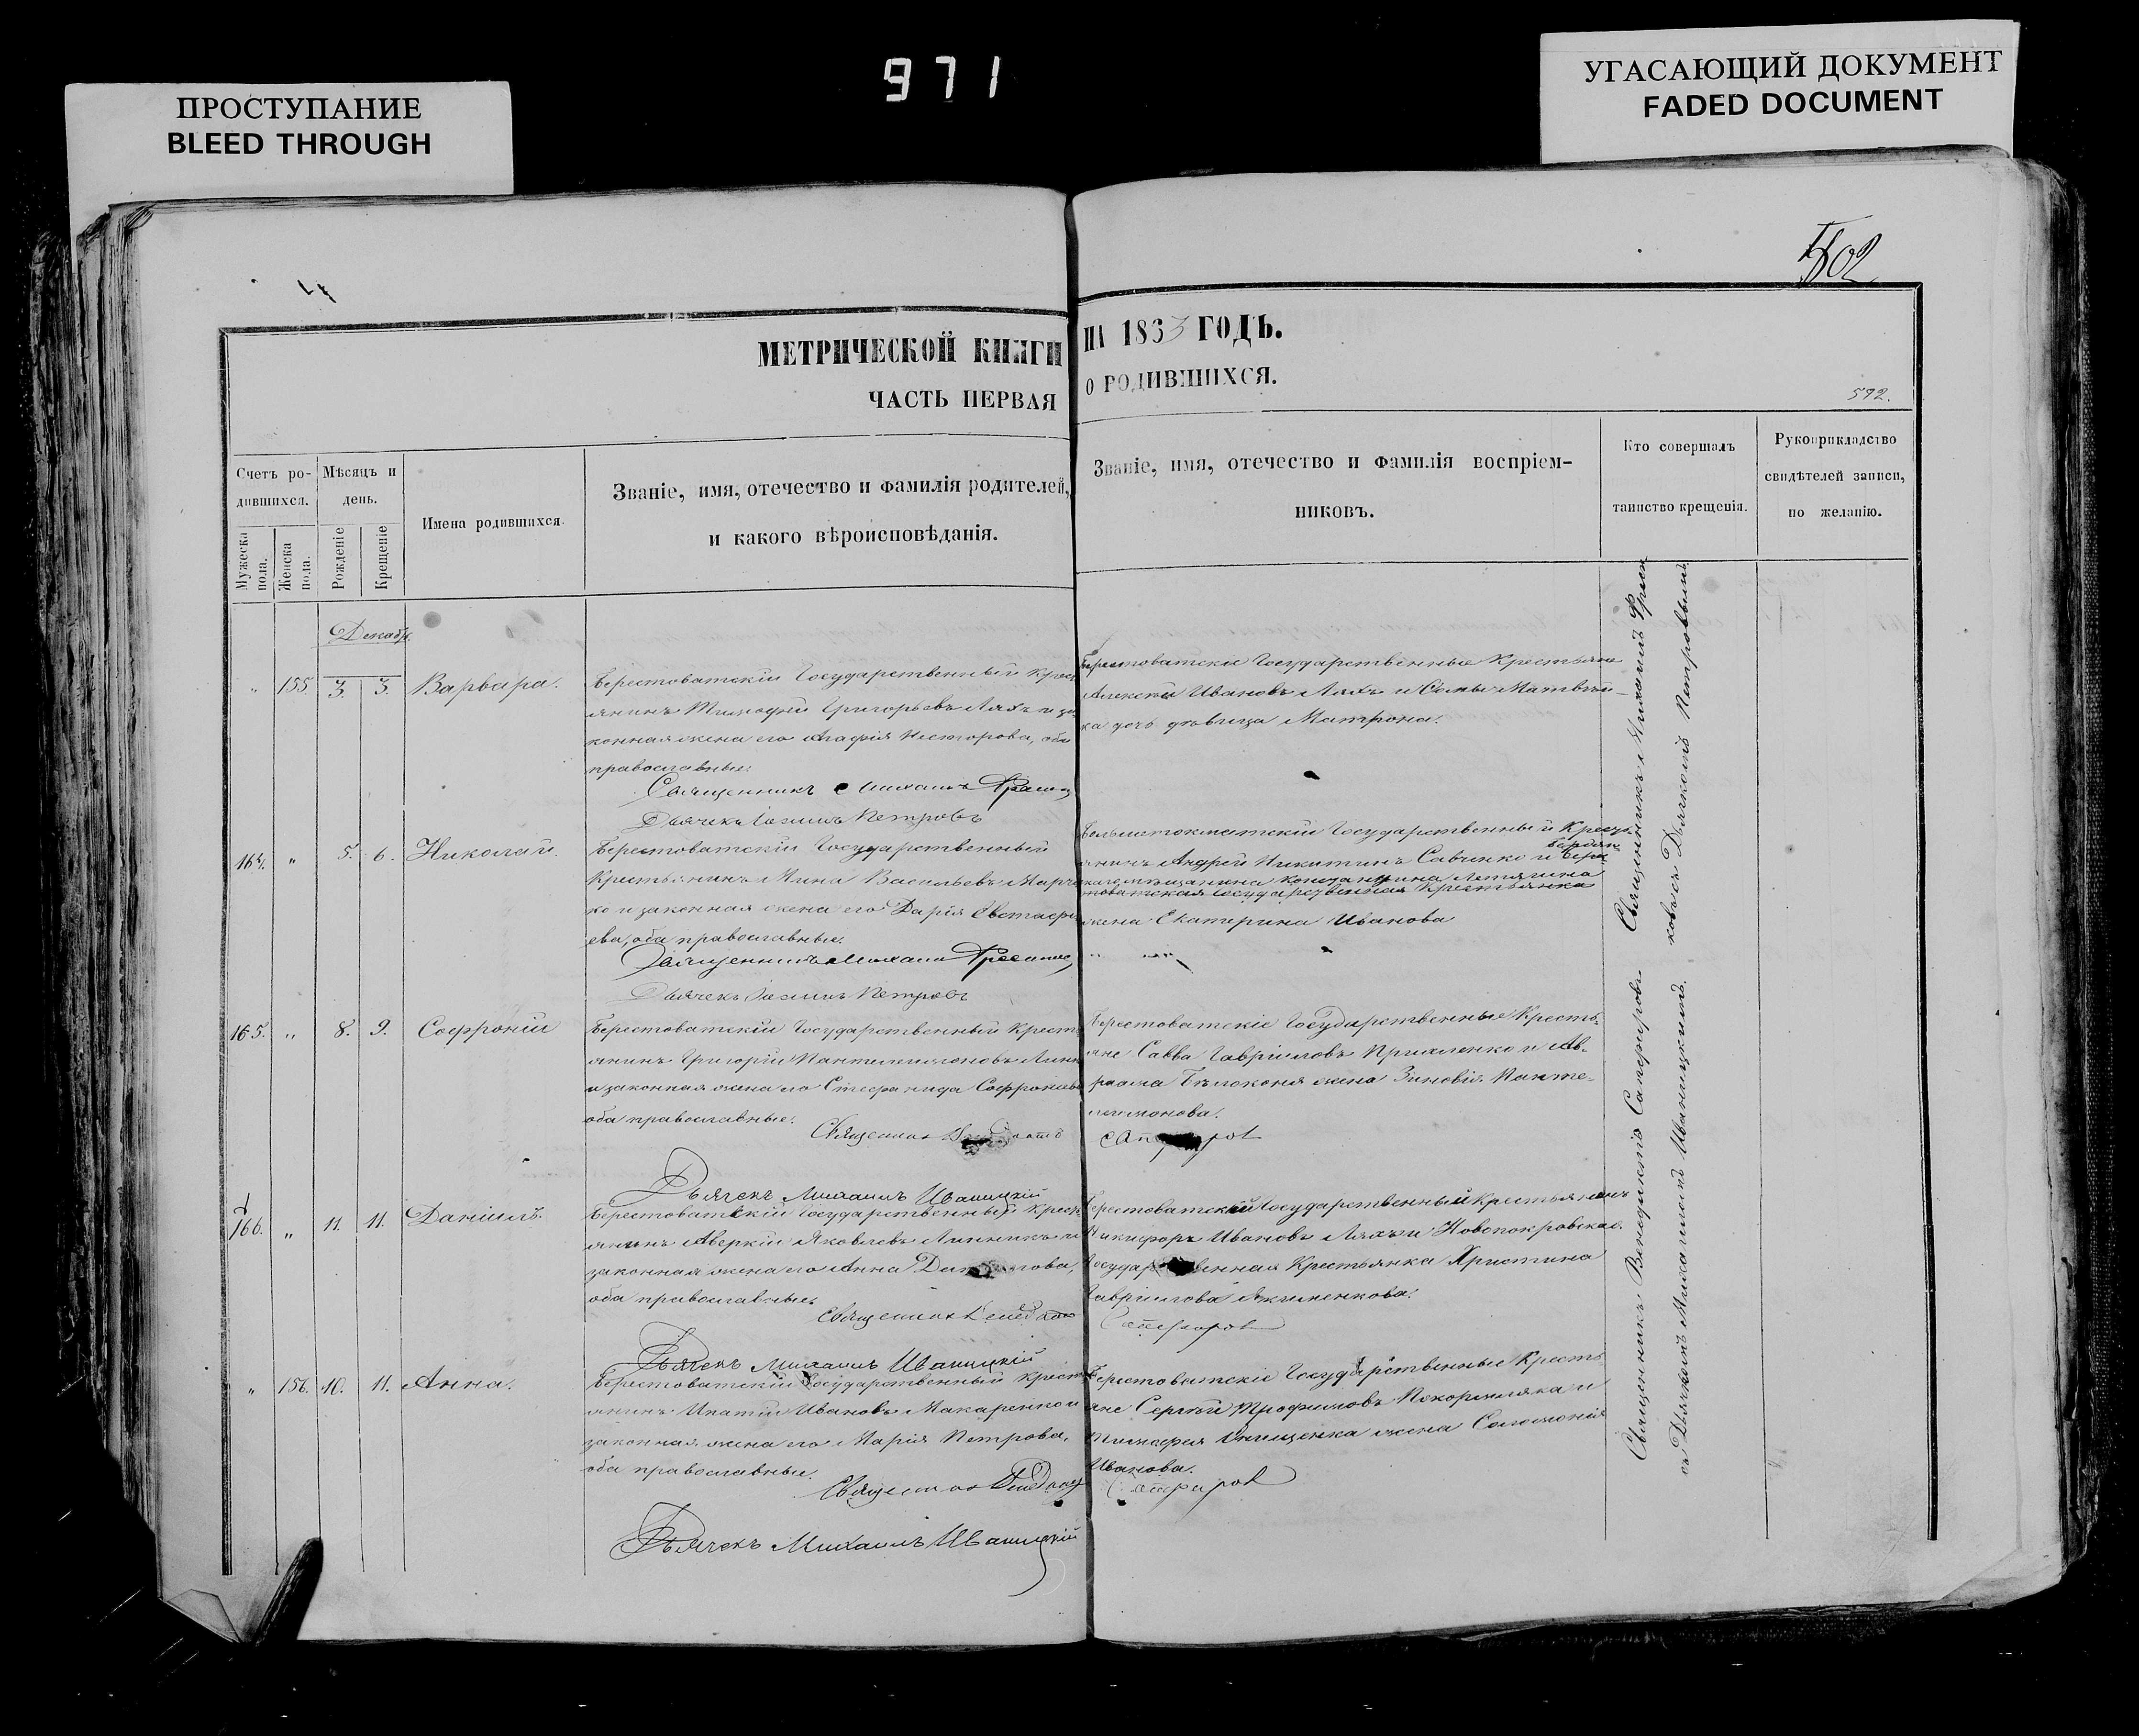 971
ПРОСТУПАНИЕ
BLEED THROUGH
УГАСАЮЩИЙ ДОКУМЕНТ
FADED DOCUMENT
502
МЕТРИЧЕСКОЙ КНИГИ НА 1863 ГОДЪ.
ЧАСТЬ ПЕРВАЯ О РОДИВШИХСЯ.
572.
Счетъ ро-
дившихся.
Мужеска пола.
Женска пола.
Мѣсяцъ и
день.
Рожденіе
Крещеніе
Имена родившихся.
Званіе, имя, отечество и фамилія родителей,
и какого вѣроисповѣданія.
Званіе, имя, отечество и фамилія воспріем-
никовъ.
Кто совершалъ
таинство крещенія.
Рукоприкладство
свидѣтелей записи,
по желанію.
Декабр.
" 155. 3. 3. Варвара.
Берестоватскій Государственный Крест
янинъ Тимофей Григорьевъ Ляхъ и за
конная жена его Агафія Несторова, оба
православные.
Священникъ Михаилъ
Дьячекъ Іоаннъ Петровъ
Берестоватскіе Государственные Крестьяне
Алексѣй Ивановъ Ляхъ и Сомы Матвѣй-
ка дочь дѣвица Матрона.
164. " 5. 6. Николай.
Берестоватскій Государственный
Крестьянинъ Мина Васильевъ Марч
ко и законная жена его Дарія Евстафі
ева, оба православные.
Священникъ Михаилъ
Дьячекъ Іоаннъ Петровъ
Большетокматскій Государственный Кресть-
янинъ Андрей Никитинъ Савченко и
Бердян
скаго мѣщанина Константина
товатская Государственная Крестьянка
жена Екатерина Иванова
165. " 8. 9. Софроній
Берестоватскій Государственный Крест
янинъ Григорій Пантелеимоновъ
и законная жена его Стефанида Софроніева
оба православные.
Священник
Дьячекъ Михаилъ Иваницкій
Берестоватскіе Государственные Кресть-
яне Савва Гавріиловъ и Ав-
раама Бѣлоконя жена Зиновія Панте-
леимонова.
166. " 11. 11. Даніилъ.
Берестоватскій Государственный Крест
янинъ Аверкій Яковлевъ Линникъ и
законная жена его Анна
оба православные.
Священник
Дьячекъ Михаилъ Иваницкій
Берестоватскій Государственный Крестьянинъ
Никифоръ Ивановъ Ляхъ и Новопокровская
Государственная Крестьянка Христина
Гавріилова
" 156. 10. 11. Анна.
Берестоватскій Государственный Крест
янинъ Ипатій Ивановъ Макаренко и
законная жена его Марія Петрова,
оба православные.
Священник
Дьячекъ Михаилъ Иваницкій
Берестоватскіе Государственные Кресть
яне Сергѣй Трофимовъ и
Тимофея Онищенка жена Соломонія
Иванова.
Священникъ Михаилъ
Дьячкомъ Петровымъ
Священникъ Венедиктъ Сапфировъ
съ Дьячкомъ Михаиломъ Иваницкимъ.